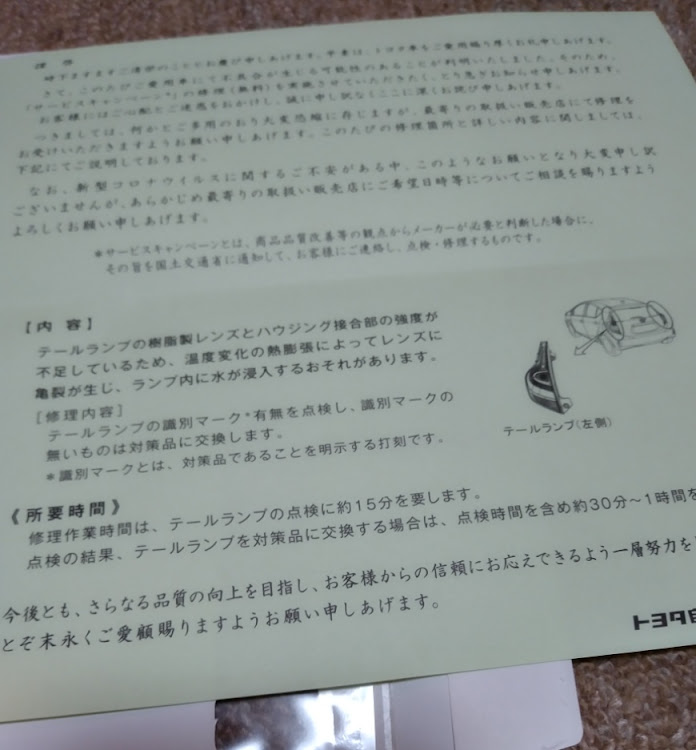 謹啓
時下ますますご清祥のこととお慶び申しあげます。平素は、トヨタ車をご愛用賜り厚くお礼申しあげます。
さて、このたびご愛用車にて不具合が生じる可能性のあることが判明いたしました。そのため、
「サービスキャンペーン*」の修理(無料)を実施させていただきたく、とり急ぎお知らせ申しあげます。
お客様にはご心配とご迷惑をおかけし、誠に申し訳なくここに深くお詫び申しあげます。
つきましては、何かとご多用のおり大変恐縮に存じますが、最寄りの取扱い販売店にて修理を
お受けいただきますようお願い申しあげます。このたびの修理箇所と詳しい内容に関しましては、
下記にてご説明しております。
なお、新型コロナウイルスに関するご不安がある中、このようなお願いとなり大変申し訳
ございませんが、あらかじめ最寄りの取扱い販売店にご希望日時等についてご相談を賜りますよう
よろしくお願い申しあげます。
*サービスキャンペーンとは、商品品質改善等の観点からメーカーが必要と判断した場合に、
その旨を国土交通省に通知して、お客様にご連絡し、点検・修理するものです。
[内 容]
テールランプの樹脂製レンズとハウジング接合部の強度が
不足しているため、温度変化の熱膨張によってレンズに
亀裂が生じ、ランプ内に水が浸入するおそれがあります。
[修理内容]
テールランプの識別マーク*有無を点検し、識別マークの
無いものは対策品に交換します。
*識別マークとは、対策品であることを明示する打刻です。
テールランプ(左側)
《所要時間》
修理作業時間は、テールランプの点検に約15分を要します。
点検の結果、テールランプを対策品に交換する場合は、点検時間を含め約30分～1時間を
今後とも、さらなる品質の向上を目指し、お客様からの信頼にお応えできるよう一層努力を
とぞ末永くご愛顧賜りますようお願い申しあげます。
トヨタ自